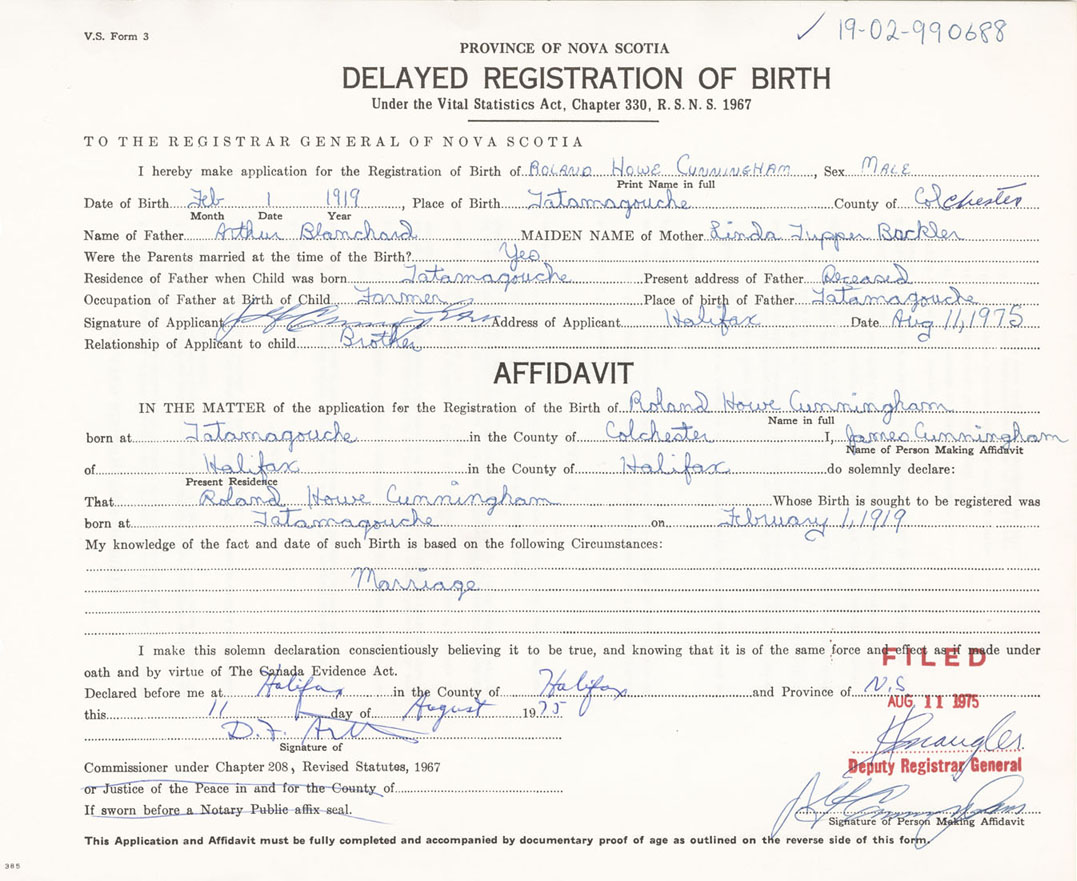 V.S. Form 3
✓ 19-02-990688
PROVINCE OF NOVA SCOTIA
DELAYED REGISTRATION OF BIRTH
Under the Vital Statistics Act, Chapter 330, R. S. N. S. 1967
TO THE REGISTRAR GENERAL OF NOVA SCOTIA
I hereby make application for the Registration of Birth of ROLAND HOWE CUNNINGHAM, Sex MALE
Print Name in full
Date of Birth Feb 1 1919, Place of Birth Tatamagouche County of Colchester
Month Date Year
Name of Father Arthur Blanchard MAIDEN NAME of Mother Linda Tupper Backler
Were the Parents married at the time of the Birth? Yes
Residence of Father when Child was born Tatamagouche Present address of Father Deceased
Occupation of Father at Birth of Child Farmer Place of birth of Father Tatamagouche
Signature of Applicant Address of Applicant Halifax Date Aug 11, 1975
Relationship of Applicant to child Brother
AFFIDAVIT
IN THE MATTER of the application for the Registration of the Birth of Roland Howe Cunningham
Name in full
born at Tatamagouche in the County of Colchester I, James Cunningham
Name of Person Making Affidavit
of Halifax in the County of Halifax do solemnly declare:
Present Residence
That Roland Howe Cunningham Whose Birth is sought to be registered was
born at Tatamagouche on February 1, 1919
My knowledge of the fact and date of such Birth is based on the following Circumstances:
Marriage
I make this solemn declaration conscientiously believing it to be true, and knowing that it is of the same force and effect as if made under
oath and by virtue of The Canada Evidence Act.
FILED
Declared before me at Halifax in the County of Halifax and Province of N.S
AUG 11 1975
this 11 day of August 1975
D.F.
Signature of
Deputy Registrar General
Commissioner under Chapter 208, Revised Statutes, 1967
or Justice of the Peace in and for the County of
If sworn before a Notary Public affix seal.
Signature of Person Making Affidavit
This Application and Affidavit must be fully completed and accompanied by documentary proof of age as outlined on the reverse side of this form.
365